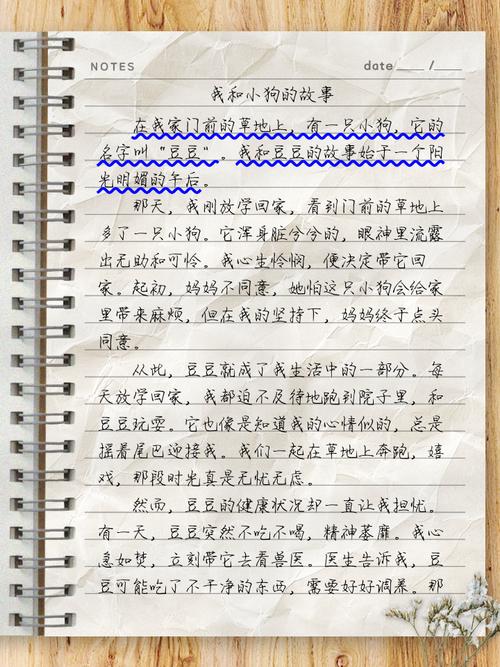 NOTES
date ____ / ____
我和小狗的故事
在我家门前的草地上，有一只小狗，它的
名字叫“豆豆”。我和豆豆的故事始于一个阳
光明媚的午后。
那天，我刚放学回家，看到门前的草地上
多了一只小狗。它浑身脏兮兮的，眼神里流露
出无助和可怜。我心生怜悯，便决定带它回
家。起初，妈妈不同意，她怕这只小狗会给家
里带来麻烦，但在我的坚持下，妈妈终于点头
同意。
从此，豆豆就成了我生活中的一部分。每
天放学回家，我都迫不及待地跑到院子里，和
豆豆玩耍。它也像是知道我的心情似的，总是
摇着尾巴迎接我。我们一起在草地上奔跑，嬉
戏，那段时光真是无忧无虑。
然而，豆豆的健康状况却一直让我担忧。
有一天，豆豆突然不吃不喝，精神萎靡。我心
急如焚，立刻带它去看兽医。医生告诉我，豆
豆可能吃了不干净的东西，需要好好调养。那